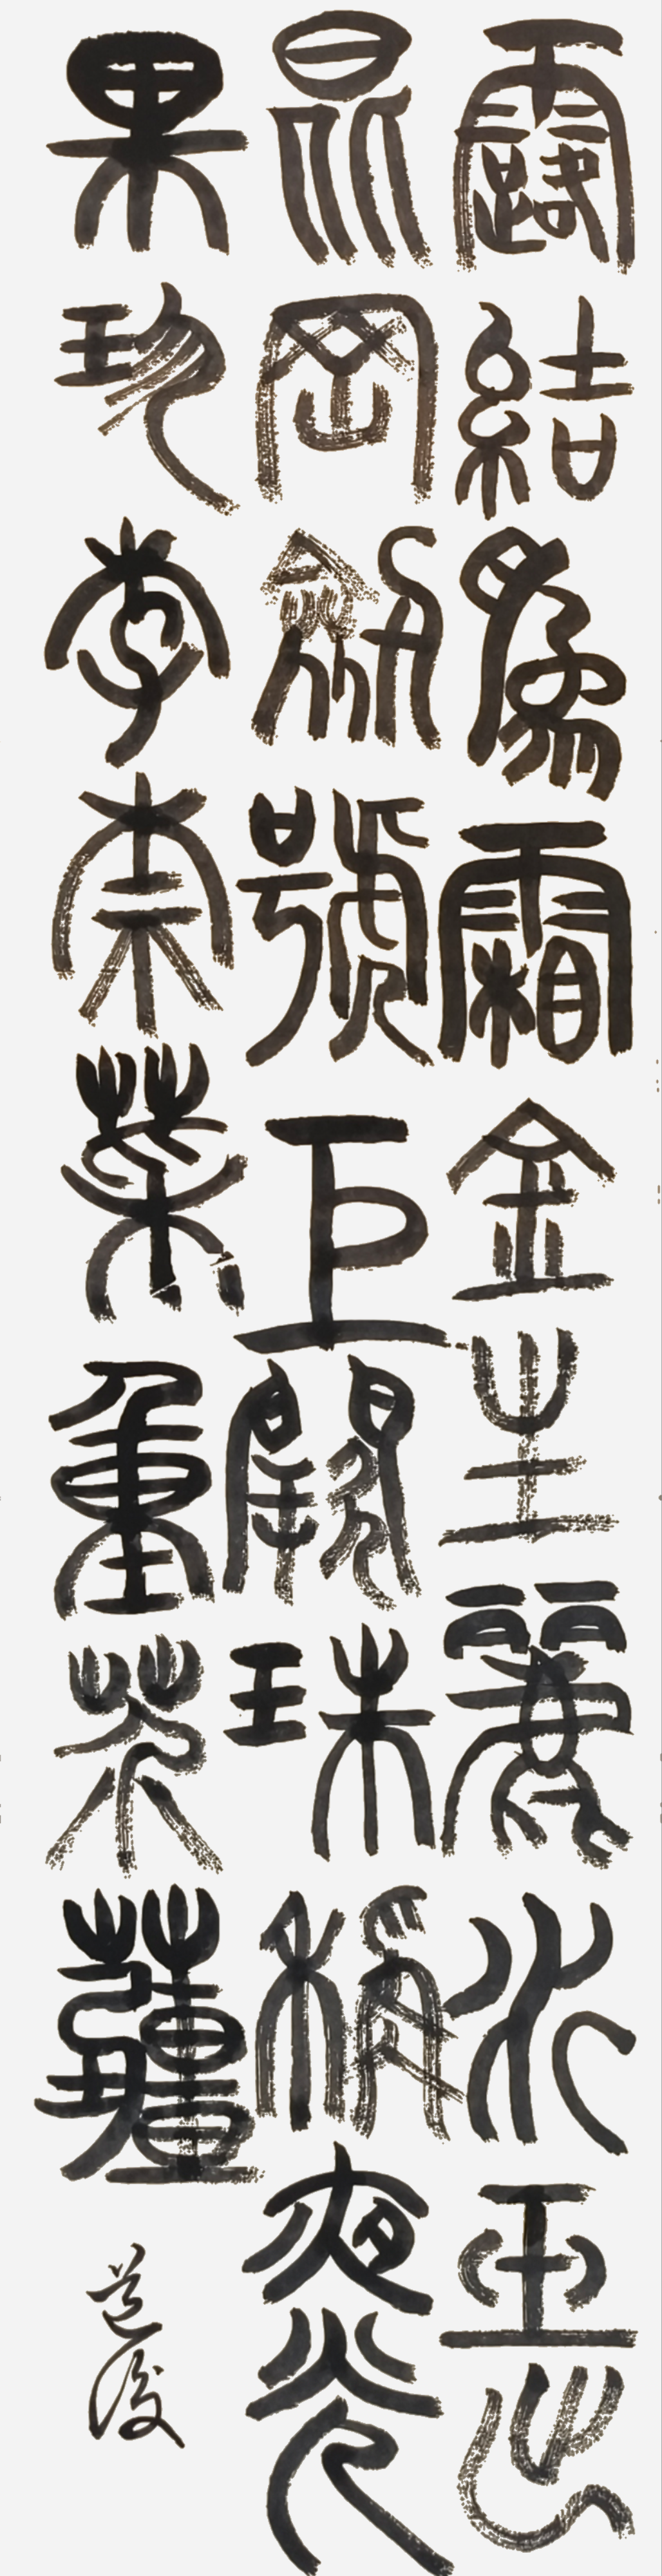 露結為霜金生麗水玉出
崑岡劍號巨闕珠稱夜光
果珍李柰菜重芥薑
道俊